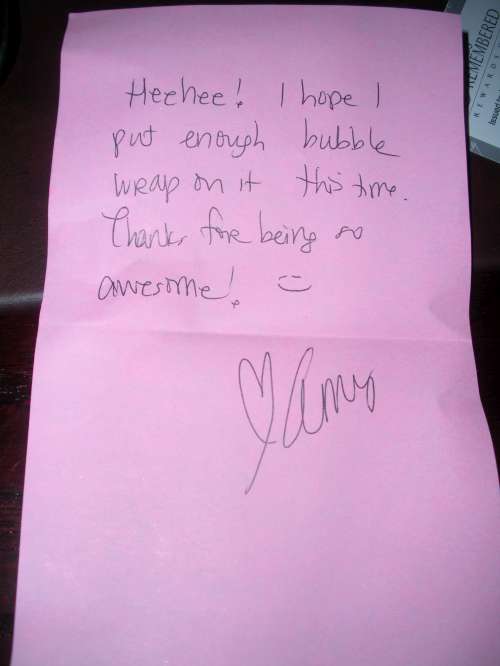 Heehee! I hope I
put enough bubble
wrap on it this time.
Thanks for being so
awesome! :)
♡ Amy
REMEMBERED
REWARDS
Issued